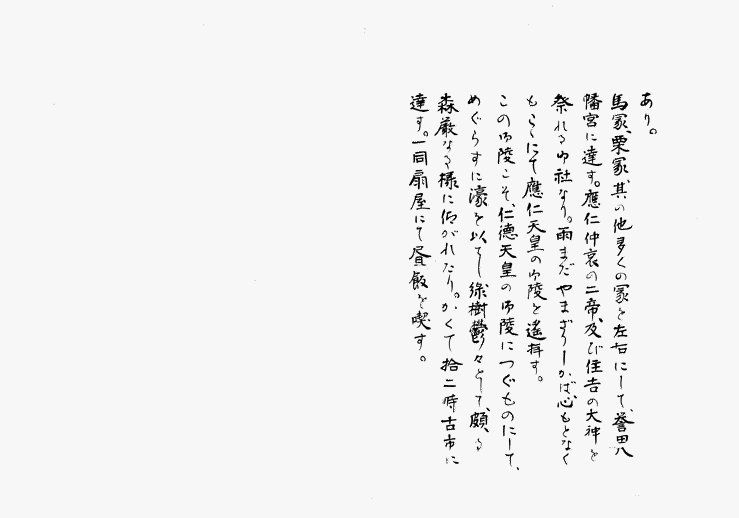 あり。
馬冢、栗冢、其の他多くの冢を左右にして、誉田八
幡宮に達す。應仁仲哀の二帝、及び住吉の大神を
祭れる御社なり。雨まだやまざりしかば、心もとなく
もここにて應仁天皇の御陵を遙拝す。
この御陵こそ、仁德天皇の御陵につぐものにして、
めぐらすに濠を以てし綠樹鬱々として、頗る
森厳なる様に仰がれたり。かくて拾二時古市に
達す。一同扇屋にて昼飯を喫す。